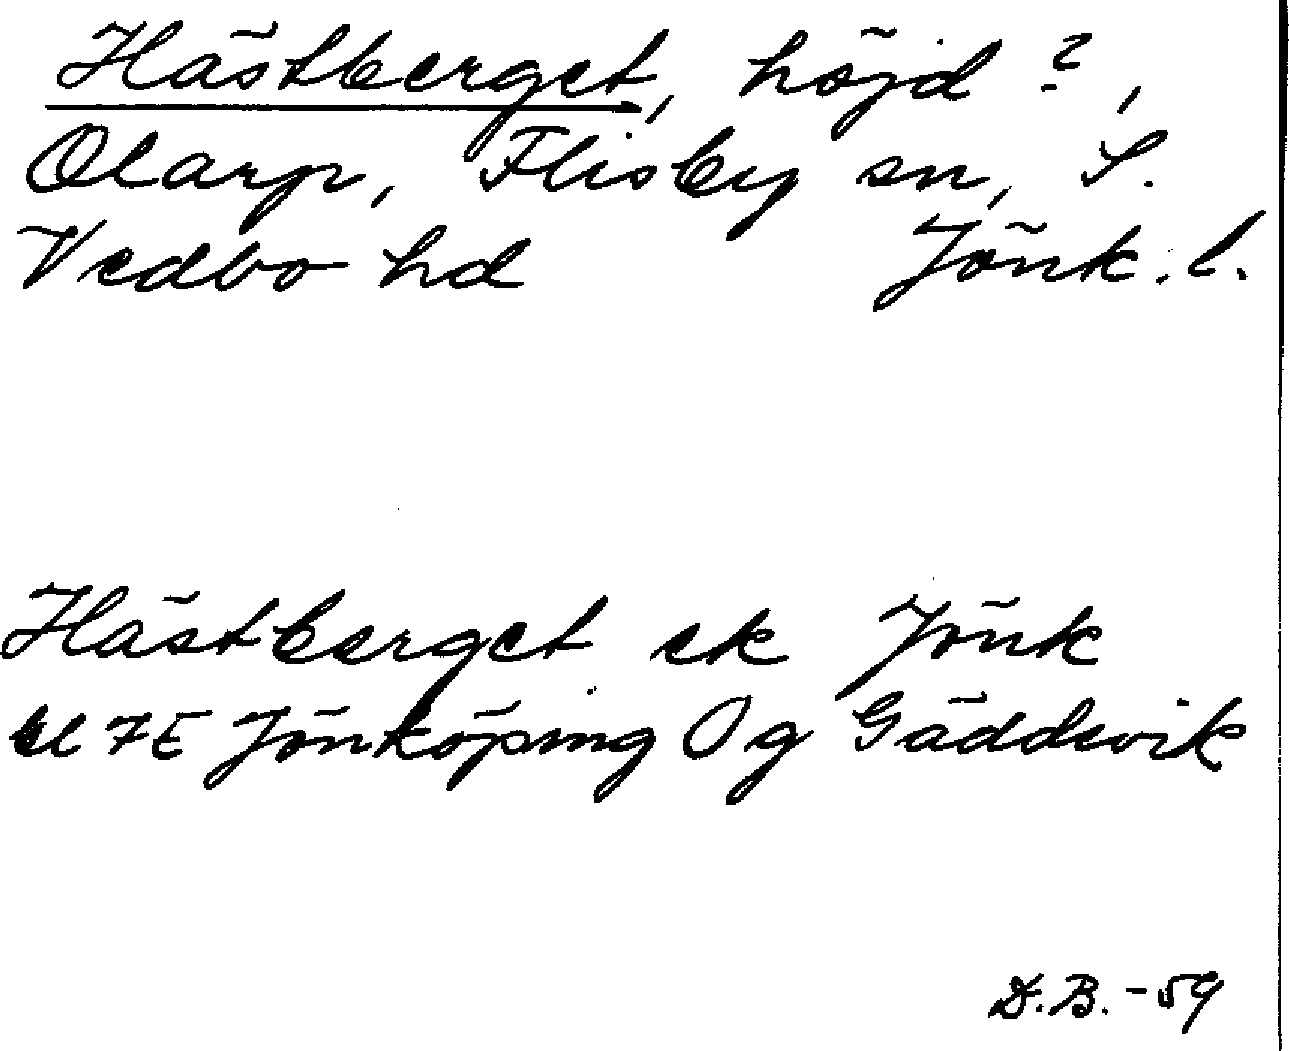 Hästberget, höjd ?,
Olarp, Flisby sn, S.
Vedbo hd Jönk. l.
Hästberget ek Jönk
7E Jönköping Og Gäddevik
D.B. -59